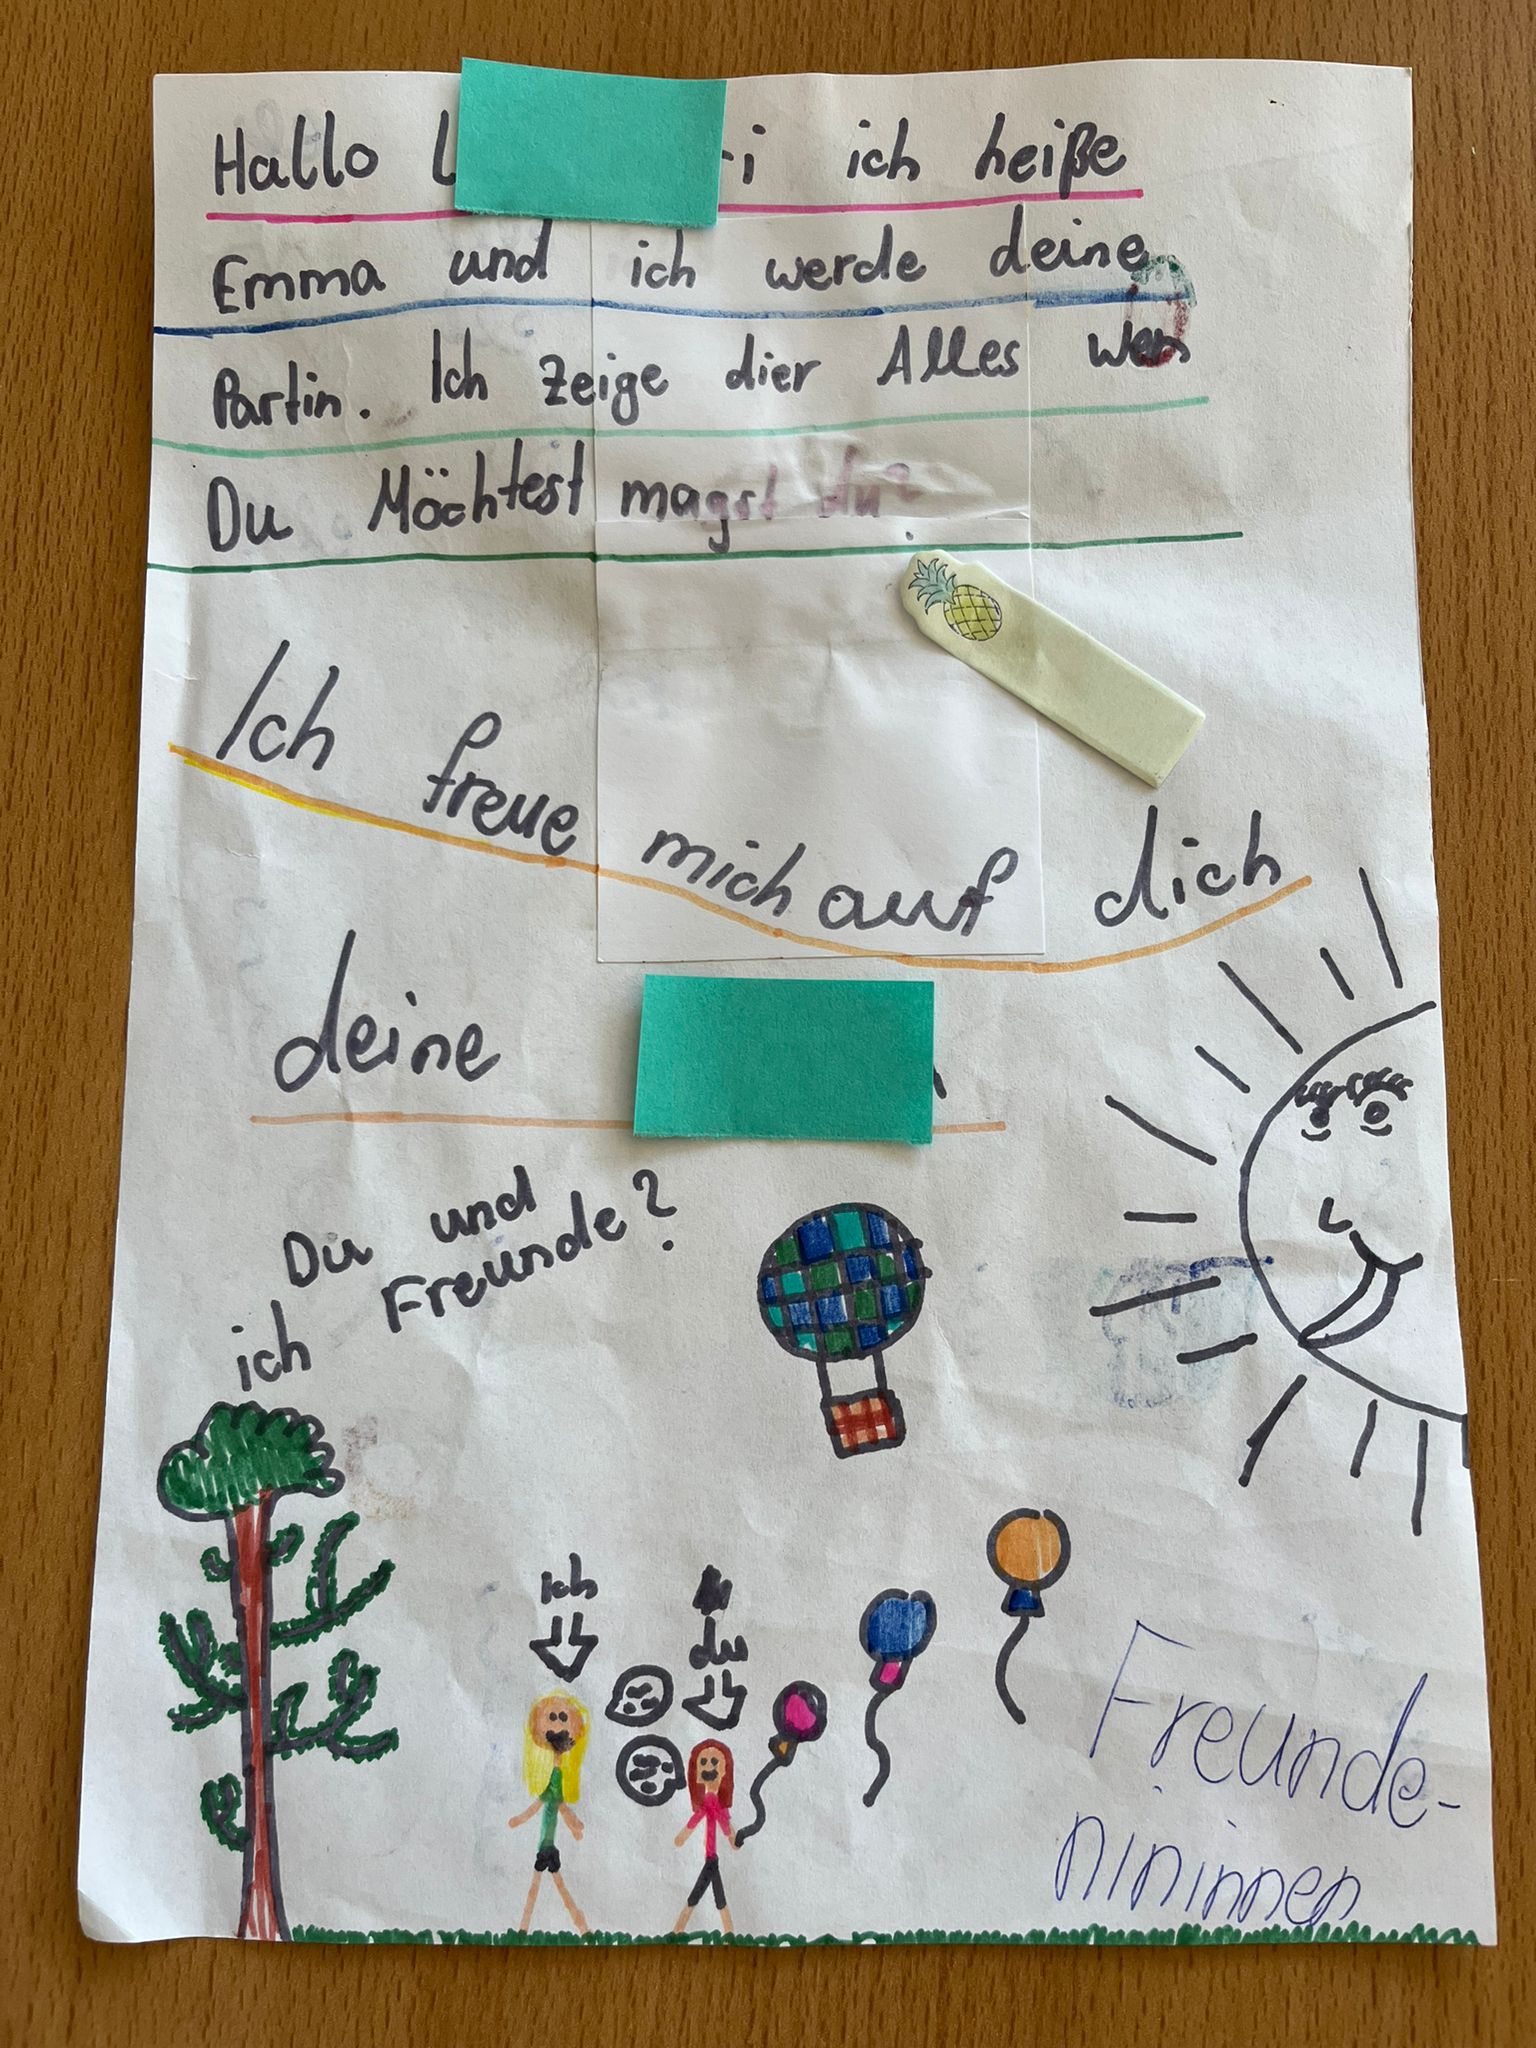 Hallo L i ich heiße
Emma und ich werde deine
Partin. Ich zeige dier Alles wen
Du Möchtest magst du?
Ich freue mich auf dich
deine
Du und
ich Freunde?
ich
du
Freunde-
nininnen